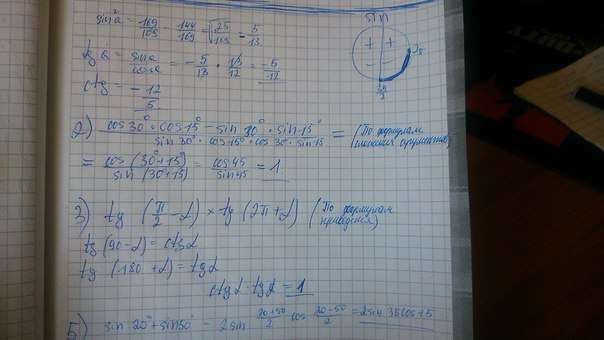 sin²a = 169/169 - 144/169 = √25/169 = 5/13
sin
+ +
- -
tg a = sina/cosa = -5/13 · 13/12 = -5/12
ctg = -12/5
2) cos30°·cos15° - sin 30°·sin15° / sin 30°·cos15°·cos30°·sin15 = (По формулам сложения аргументов)
= cos(30°+15°)/sin(30+15) = cos45/sin45 = 1
3) tg (π/2 - α) × tg (2π + α) (По формулам приведения)
tg(90-α) = ctgα
tg (180+α) = tgα
ctgα · tgα = 1
5) sin 20°+sin50° = 2sin 20+50/2 cos 20-50/2 = 2sin 35cos15